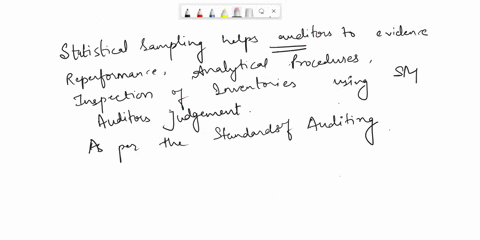 Statistical Sampling helps auditors to evidence
Reperformance, Analytical Procedures,
Inspection of Inventories using SM
Auditors Judgement.
As per the Standards of Auditing.